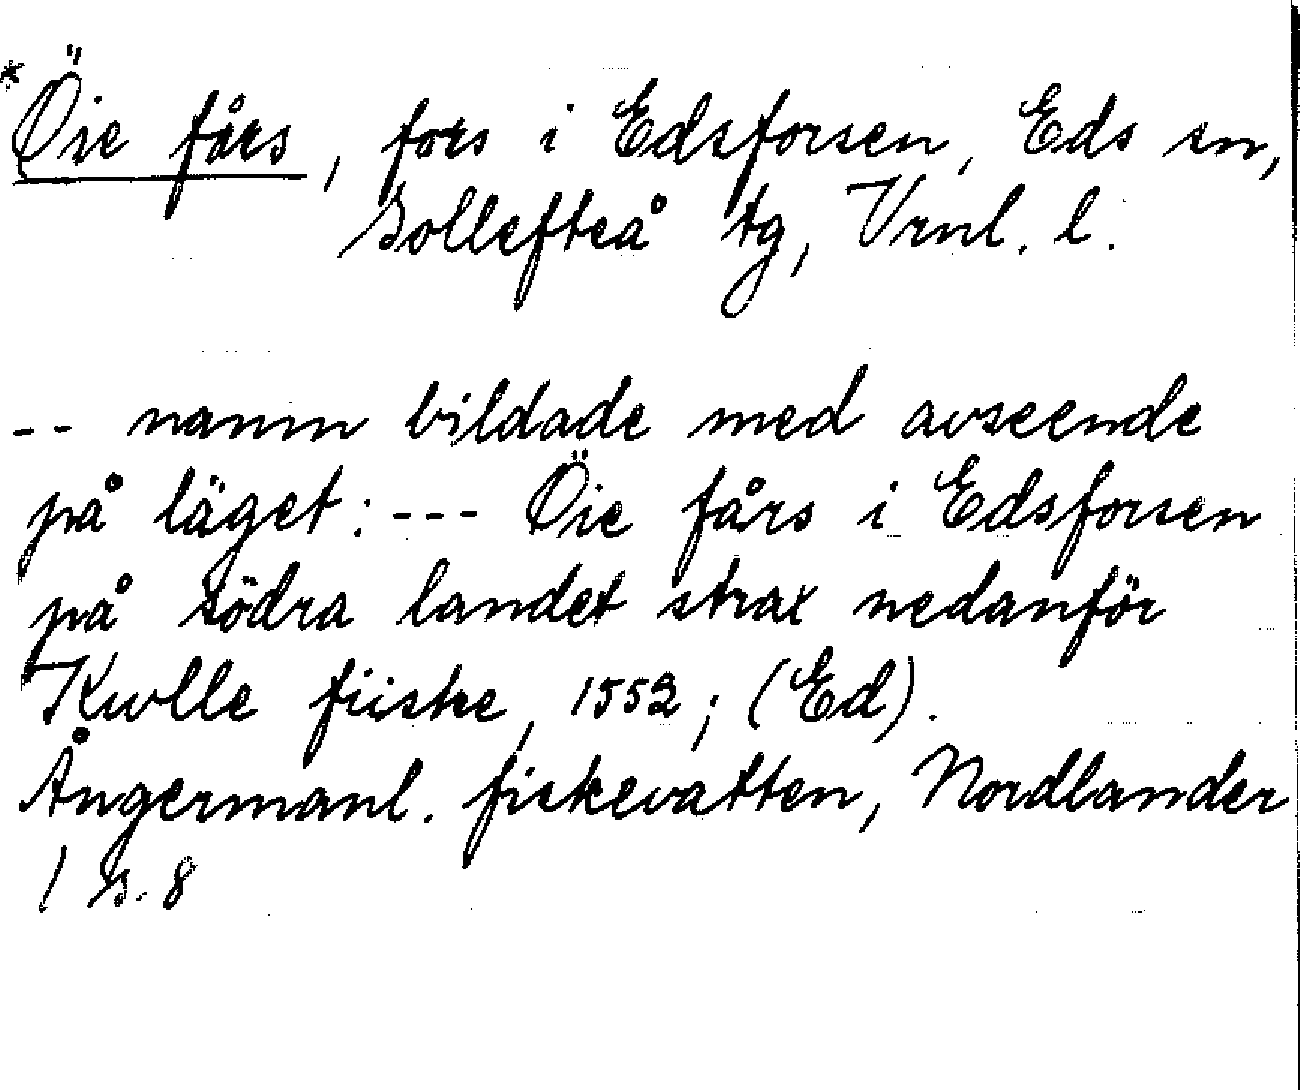 *Öie fårs, fors i Edsforsen, Eds sn,
Sollefteå tg, Vrnl. l.
-- namn bildade med avseende
på läget: --- Öie fårs i Edsforsen
på södra landet strax nedanför
Kwlle fiiske, 1552; (Ed).
Ångermanl. fiskevatten, Nordlander
/ s. 8